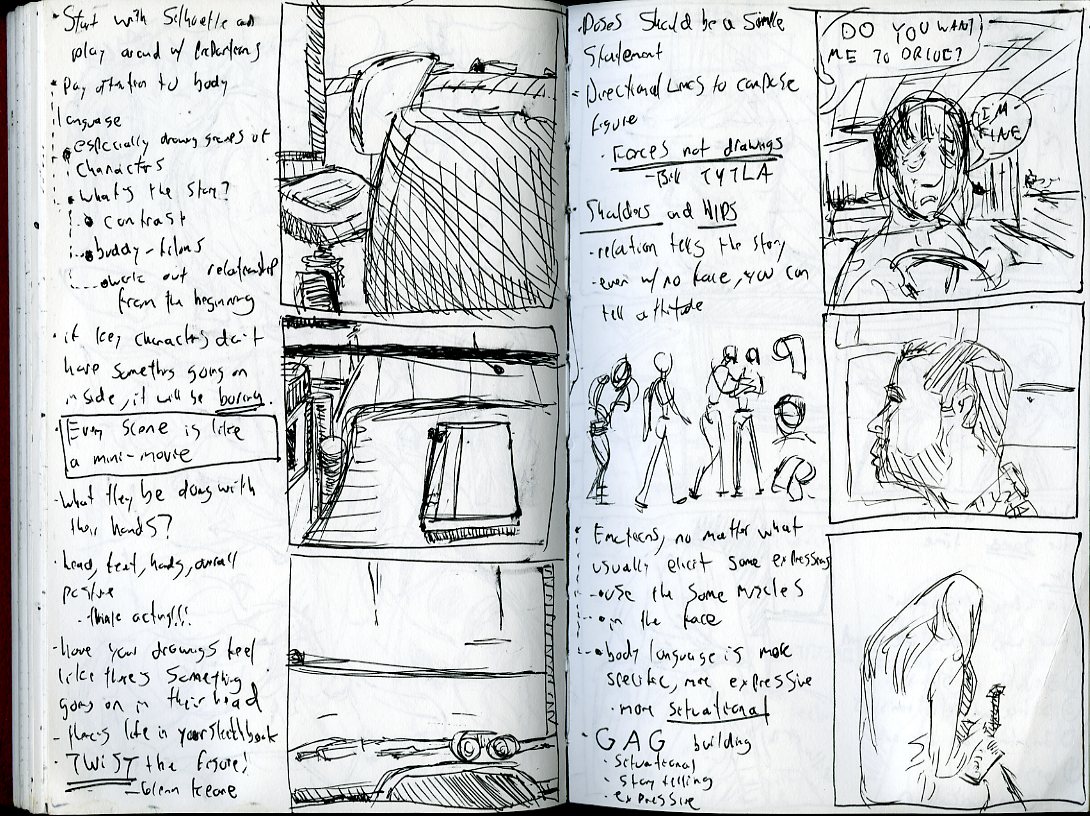 • Start with Silhouette and
play around w/ proportions
• Pay attention to body
language
• especially drawing groups of
characters
• what's the story?
• contrast
• buddy-films
• work out relationship
from the beginning
• if key characters don't
have something going on
inside, it will be boring.
• Every scene is like
a mini-movie
- What they be doing with
their hands?
- head, feet, hands, overall
posture
- think acting!!!
- have your drawings feel
like there's something
going on in their head
- there's life in your sketchbook
- TWIST the figure!
- Glenn Keane
• Poses should be a simple
statement
• Directional lines to compose
figure
• Forces not drawings
- Bill TYTLA
• Shoulders and HIPS
- relation tells the story
- even w/ no face, you can
tell attitude
• Emotions, no matter what
usually elicit same expressions
- use the same muscles
- in the face
• body language is more
specific, more expressive
• more situational
• GAG building
• situational
• story telling
• expressive
DO YOU WANT
ME TO DRIVE?
I'M
FINE